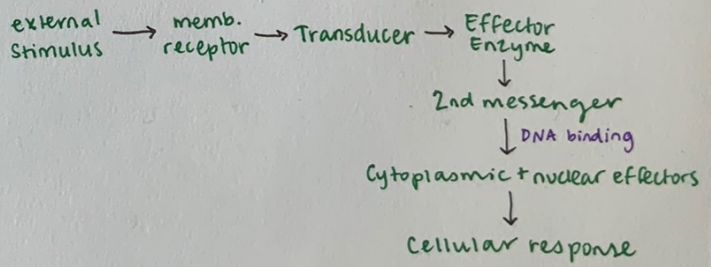 external stimulus → memb. receptor → Transducer → Effector Enzyme
↓
2nd messenger
↓ DNA binding
Cytoplasmic + nuclear effectors
↓
Cellular response